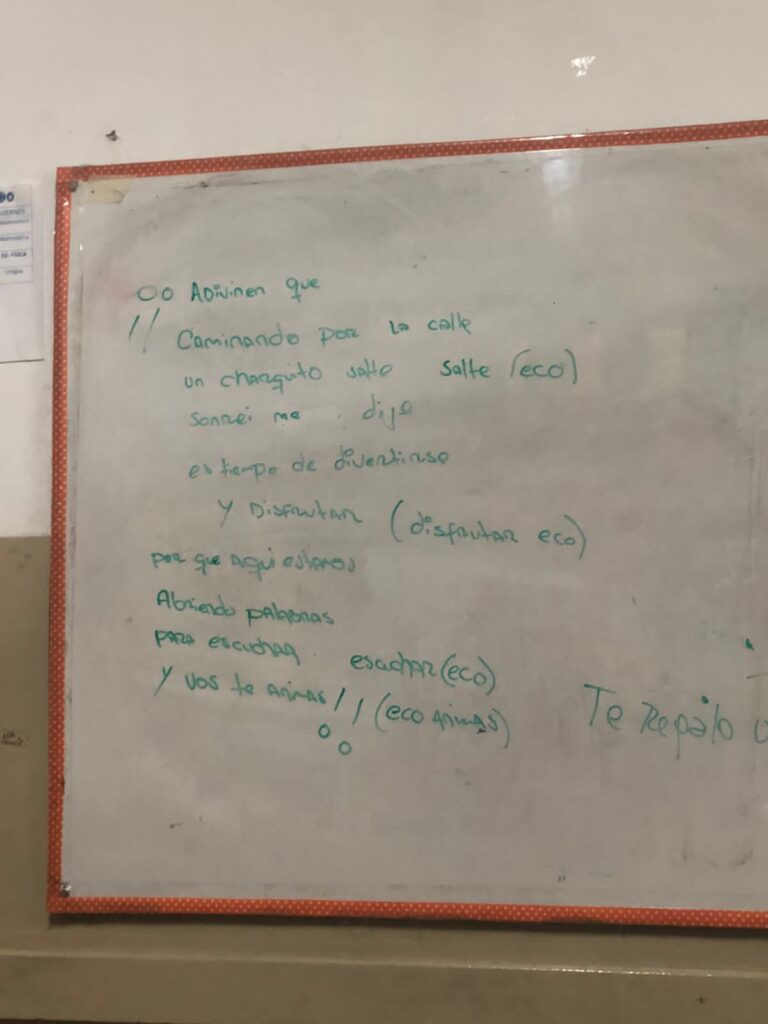 DO
VIERNES
Matemática
Matemática
ED. FÍSICA
Lengua
Adivinen que
Caminando por la calle
un charquito salte salte (eco)
sonrei me dije
es tiempo de divertirse
Y Disfrutar (disfrutar eco)
por que aqui estamos
Abriendo palabras
para escuchar escuchar (eco)
Y vos te animas!! (eco Animas)
Te Regalo